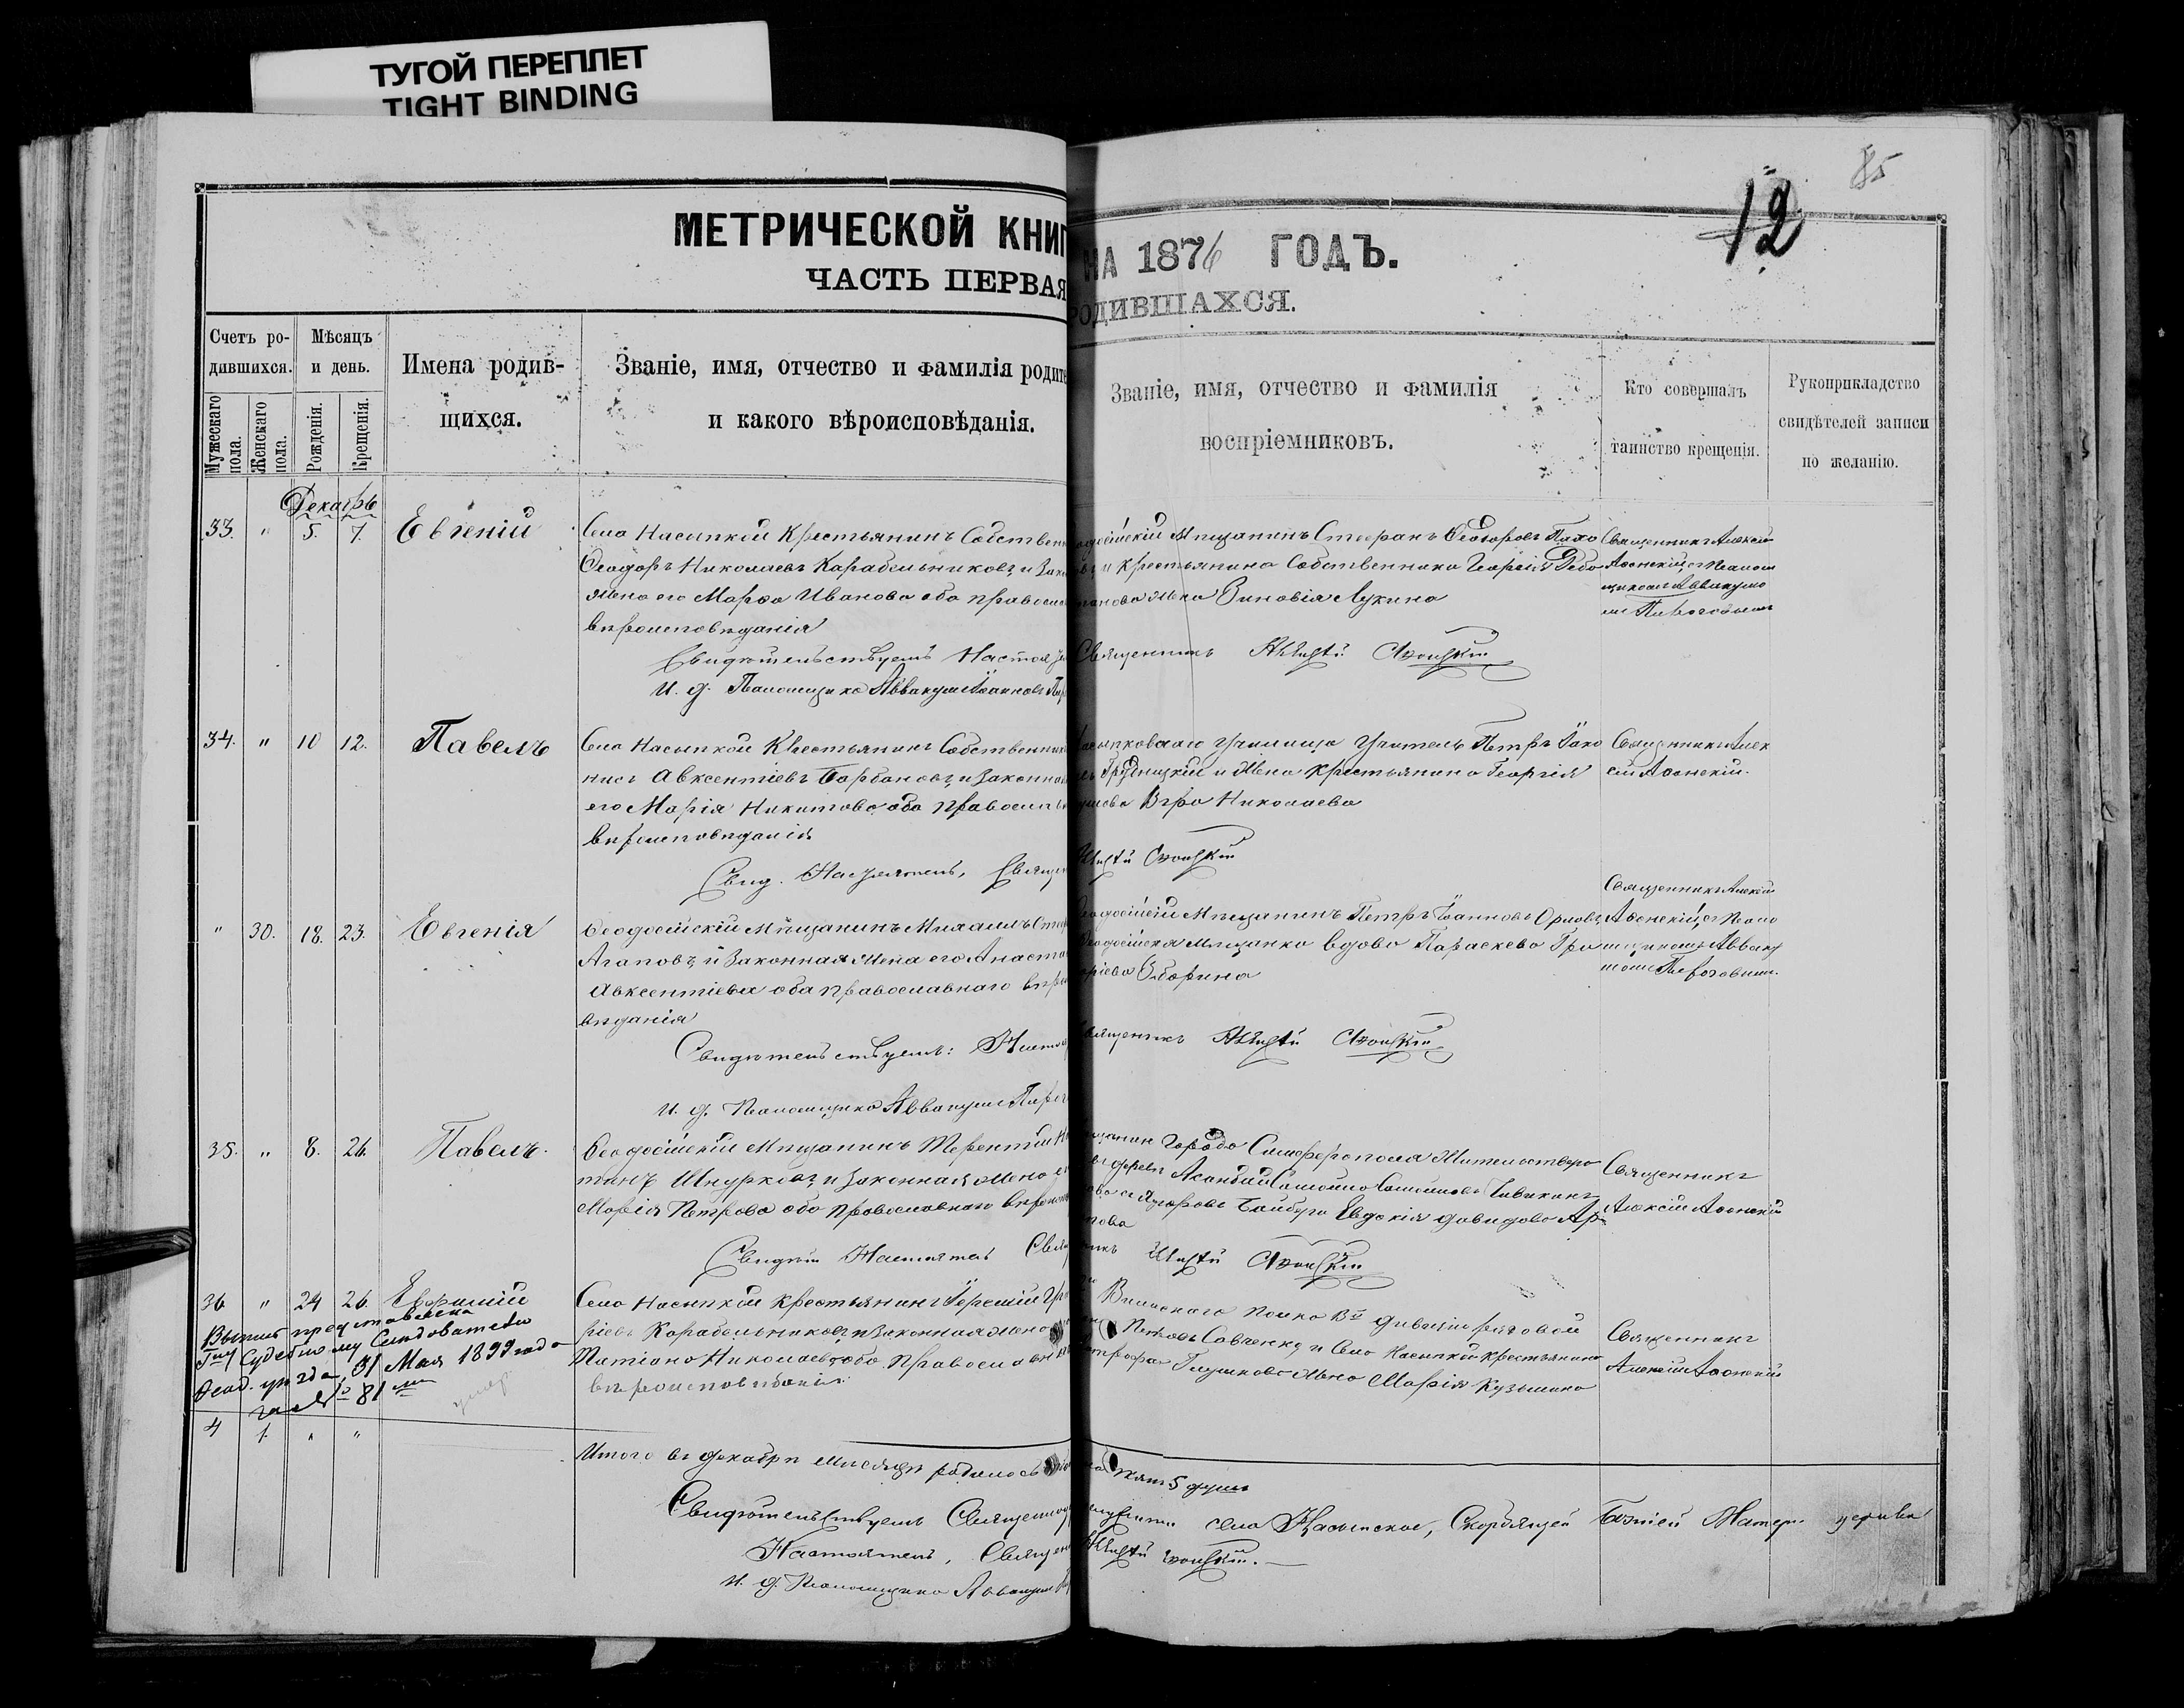 ТУГОЙ ПЕРЕПЛЕТ
TIGHT BINDING
85
12
МЕТРИЧЕСКОЙ КНИГ
НА 1876 ГОДЪ.
ЧАСТЬ ПЕРВАЯ
РОДИВШАХСЯ.
Счетъ ро-
дившихся.
Мужескаго пола.
Женскаго пола.
Мѣсяцъ
и день.
Рожденія.
Крещенія.
Имена родив-
щихся.
Званіе, имя, отчество и фамилія родите
и какого вѣроисповѣданія.
Званіе, имя, отчество и фамилія
воспріемниковъ.
Кто совершалъ
таинство крещенія.
Рукоприкладство
свидѣтелей записи
по желанію.
Декабрь
33. " 5. 7. Евгеній
Села Насыпкой Крестьянинъ Собственн
Ѳеодоръ Николаевъ Карабельниковъ, и Зако
жена его Марѳа Иванова оба правосла
вѣроисповѣданія
Свидѣтельствуемъ Настоя
И. д. Псаломщика Аввакумъ Іоанновъ
Мѣщанинъ Стефанъ Ѳеодоровъ
и Крестьянина Собственника Георгія
жена Зиновія Лукина
Священникъ Алексѣй Аѳонскій
Священникъ Алексѣй
Аѳонскій съ Псалом
щикомъ Аввакумо
мъ Пироговымъ
34. " 10 12. Павелъ
Села Насыпкой Крестьянинъ Собственник
нисъ Авксентіевъ Барбановъ, и Законна
его Марія Никитова оба православ
вѣроисповѣданія
Свид. Настоятель, Священ
Училища Учитель Петръ Іако
Грудницкій и жена крестьянина Георгія
Вѣра Николаева
Алексѣй Аѳонскій
Священникъ Алек
сѣй Аѳонскій.
" 30. 18. 23. Евгенія
Ѳеодосійскій Мѣщанинъ Михаилъ
Агаповъ, и Законная жена его Анаста
Авксентіева оба православнаго вѣрои
вѣданія
Свидѣтельствуемъ: Насто
И. д. Псаломщика Аввакумъ Пирог
Ѳеодосійскій Мѣщанинъ Петръ Іоанновъ Орловъ,
Ѳеодосійская Мѣщанка вдова Параскева Гри
оріева Зборина
вященникъ Алексѣй Аѳонскій
Священникъ Алексѣй
Аѳонскій, съ Псало
мщикомъ Авваку
момъ Пироговымъ.
35. " 8. 26. Павелъ.
Ѳеодосійскій Мѣщанинъ Терентій
Шнурковъ, и Законная жена е
Марія Петрова оба православнаго вѣроисп
Свидѣт. Настоятель Свящ
щанинъ Города Симферополя Жительствую
Евдокія Давидова
Алексѣй Аѳонскій
Священникъ
Алексѣй Аѳонскій
36 " 24 26. Ефимій
Выпись представлена
Судебному Слѣдователю
Ѳеод. уѣзда, 31 Мая 1899 года
за № 81
умер
Села Насыпкой Крестьянинъ Іеремій Гри
ріевъ Карабельниковъ, и Законная жена
Татіана Николаева оба Православн
вѣроисповѣданія.
Виленскаго полка дивизіи рядовой
Савченко, и Села Насыпкой Крестьянина
Глушкова жена Марія Кузьмина
Священникъ
Алексѣй Аѳонскій
4 1. " "
Итого въ декабрѣ мѣсяцѣ родилось
пять 5 душъ
Свидѣтельствуемъ Священно
служители села Насыпское, Скорбящей Божіей Матери церкви
Настоятель, Священ
Алексѣй Аѳонскій.
И. д. Псаломщика Аввакумъ